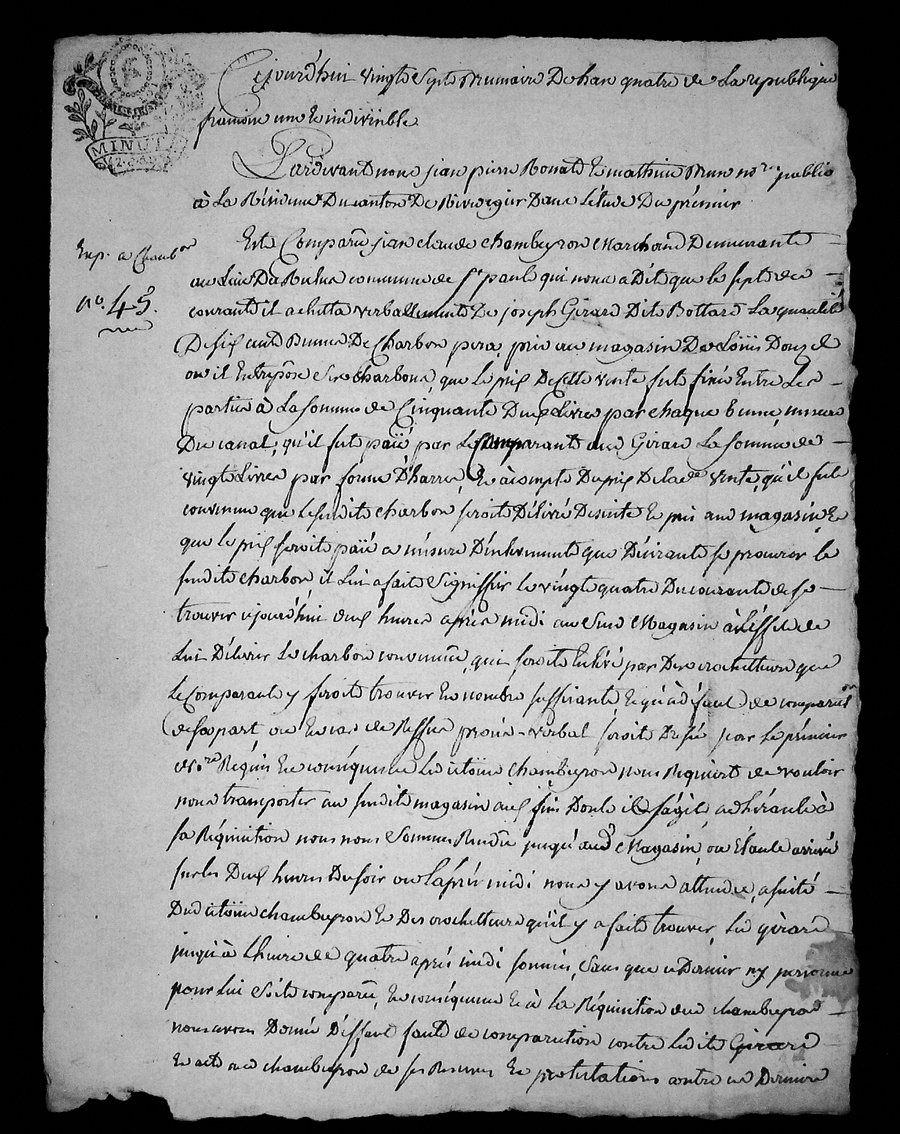 MINUT
Cejourd'hui vingt sept brumaire de l'an quatre de La republique
francoise une et indivisible
Pardevant nous jean pierre Bonald et mathieu Brun no.res public
à La Résidence du canton De Rivedegier Dans l'étude Du prémier
Exp. a Chamb.on
n.o 45.
Est Comparu jean claude chambeyron Marchand Demeurant
au lieu Du commune de S.t paul qui nous a Dit que le sept de ce
courant il achetta verballement De joseph Girard Dit Bottard La quantité
De six cent Bennes De Charbon pera, pris au magasin De Loüis Donzel
ou il Entrepose Ses charbons, que le prix De cette vente fut fixé Entre Les
parties à La Somme de Cinquante Deux Livres par chaque Benne, mesure
Du canal, qu'il fut païé par Le Comparant aud Girard La Somme de
vingt Livres par forme D'harres, Et àcompte Du prix De lad.e vente, qu'il fut
convenu que Le susdit charbon seroit Délivré Desuite Et pris aud magasin, Et
que le prix seroit païé a mésure D'enlevement que Désirant se procurer le
susdit charbon il Lui a fait Signiffier le vingt quatre Du courant de se
trouver cejourd'hui deux heures après midi au Susd Magasin à L'éffet de
Lui Délivrer Le charbon convenu, qui seroit Enlevé par Des crocheteurs que
Le Comparant y feroit trouver En nombre suffisant Et qu'à défaut de comparut.on
de sa part ou En cas de Reffus procès-verbal seroit Dréssé par Le prémier
No.re Réquis En conséquence Le citoien chambeyron nous Requiert de vouloir
nous transporter au susdit magasin aux fins Dont il s'agit adhérant à
sa Réquisition nous nous Sommes Rendus jusqu'aud Magasin, ou Etant arrivés
sur les Deux heures Du soir ou L'après midi nous y avons attendu, a suite
Dud citoien chambeyron Et Des crocheteurs qu'il y a fait trouver, Led girard
jusqu'à L'heure de quatre après midi sonnées, Sans que ce Dernier ny personne
pour Lui Soit comparu, En conséquence Et à La Réquisition dud chambeyron
nous avons Donné Déffaut faute de comparution contre Ledit Girard
Et acte aud chambeyron de ses Reserves Et protestations contre ce Dernier